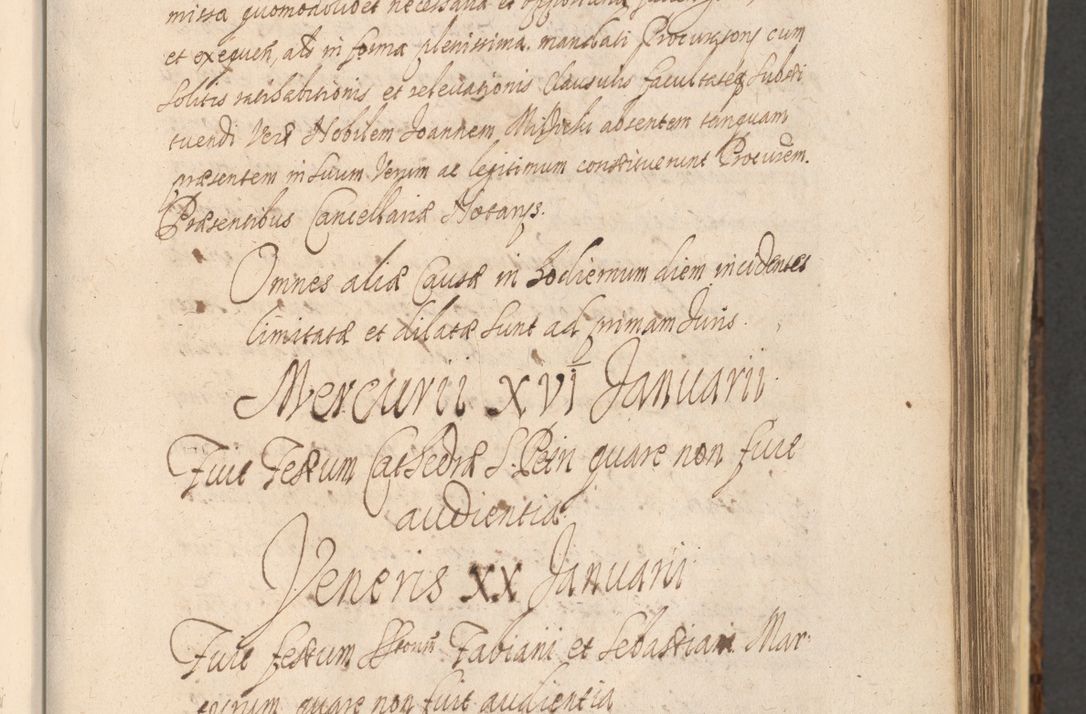 missa quomodolibet necessaria et opportuna
et exequen, ac in forma plenissima mandati Procurãtorij cum
solitis ratihabitionis et relevationis Clausulis facultateq substi
tuendi Verè Nobilem Joannem Michelis absentem tanquam
præsentem in suum Verum ac legitimum constituerunt Procurem.
Præsentibus Cancellariæ Notarijs.
Omnes aliæ Causæ in hodiernum diem incidentes
limitatæ et dilatæ sunt ad primam Juris.
Mercurii XVI Januarii
Fuit Festum Cathedræ S. Petri quare non fuit
audientia.
Veneris XX Januarii
Fuit festum SStorum Fabiani et Sebastiani Mar
tyrum quare non fuit audientia